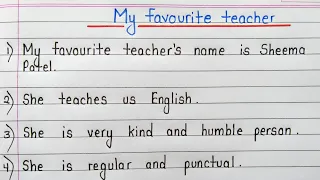 My favourite teacher
1) My favourite teacher's name is Sheema
Patel.
2) She teaches us English.
3) She is very kind and humble person.
4) She is regular and punctual.